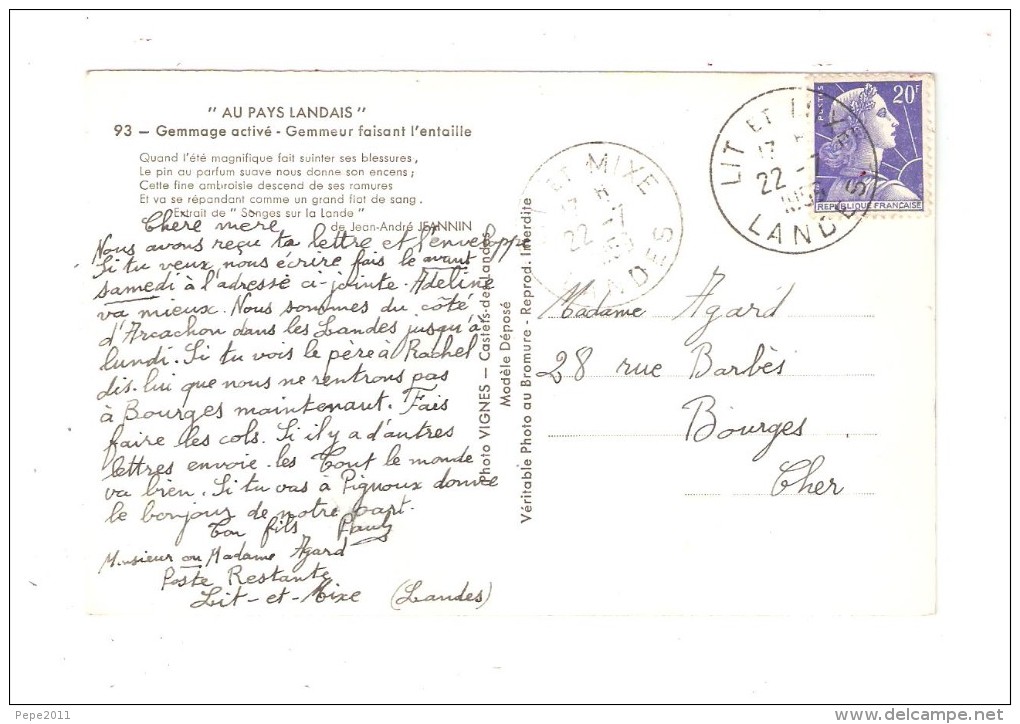 " AU PAYS LANDAIS "
93 — Gemmage activé - Gemmeur faisant l'entaille
Quand l'été magnifique fait suinter ses blessures,
Le pin au parfum suave nous donne son encens ;
Cette fine ambroisie descend de ses ramures
Et va se répandant comme un grand flot de sang.
Extrait de " Songes sur la Lande "
de Jean-André JEANNIN
Chère mère
Nous avons reçu ta lettre et l'enveloppe
Si tu veux nous écrire fais le avant
samedi à l'adresse ci-jointe. Adeline
va mieux. Nous sommes du côté
d'Arcachon dans les Landes jusqu'à
lundi. Si tu vois le père à Rachel
dis-lui que nous ne rentrons pas
à Bourges maintenant. Fais
faire les cols. Si il y a d'autres
lettres envoie-les Tout le monde
va bien. Si tu vas à Pignoux donne
le bonjour de notre part.
Ton fils
Monsieur ou Madame Agard
Poste Restante
Lit-et-Mixe (Landes)
Photo VIGNES — Castets-des-Landes
Modèle Déposé
Véritable Photo au Bromure - Reprod. Interdite
ET MIXE
22
LIT ET
17
22 - 7
LANDES
POSTES
20F
REPUBLIQUE FRANCAISE
Madame Agard
28 rue Barbès
Bourges
Cher
Pepe2011
www.delcampe.net